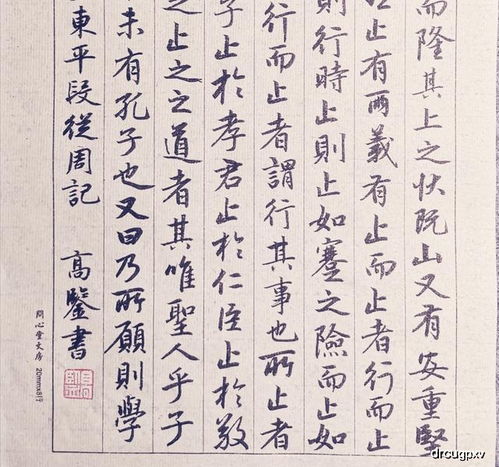 而隆其上之状阮山又有安重堅
止有兩義有止而止者行而止
則行時止則止如蹇之險而止如
行而止者謂行其事也所止者
子止於孝君止於仁臣止於敬
之止之之道者其唯聖人乎子
未有孔子也又曰乃所願則學
東平段從周記 高鑒書
問心堂文房 20mmx8行
drcugpxv